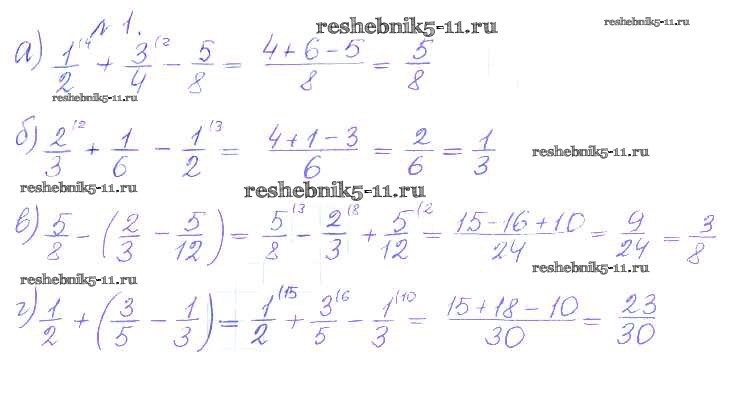 № 1.
reshebnik5-11.ru
reshebnik5-11.ru
а) 1/2 (4 + 3/4 (2 − 5/8 = (4+6−5)/8 = 5/8
reshebnik5-11.ru
б) 2/3 (2 + 1/6 − 1/2 (3 = (4+1−3)/6 = 2/6 = 1/3
reshebnik5-11.ru
reshebnik5-11.ru
reshebnik5-11.ru
в) 5/8 − (2/3 − 5/12) = 5/8 (3 − 2/3 (8 + 5/12 (2 = (15−16+10)/24 = 9/24 = 3/8
reshebnik5-11.ru
reshebnik5-11.ru
г) 1/2 + (3/5 − 1/3) = 1/2 (15 + 3/5 (6 − 1/3 (10 = (15+18−10)/30 = 23/30